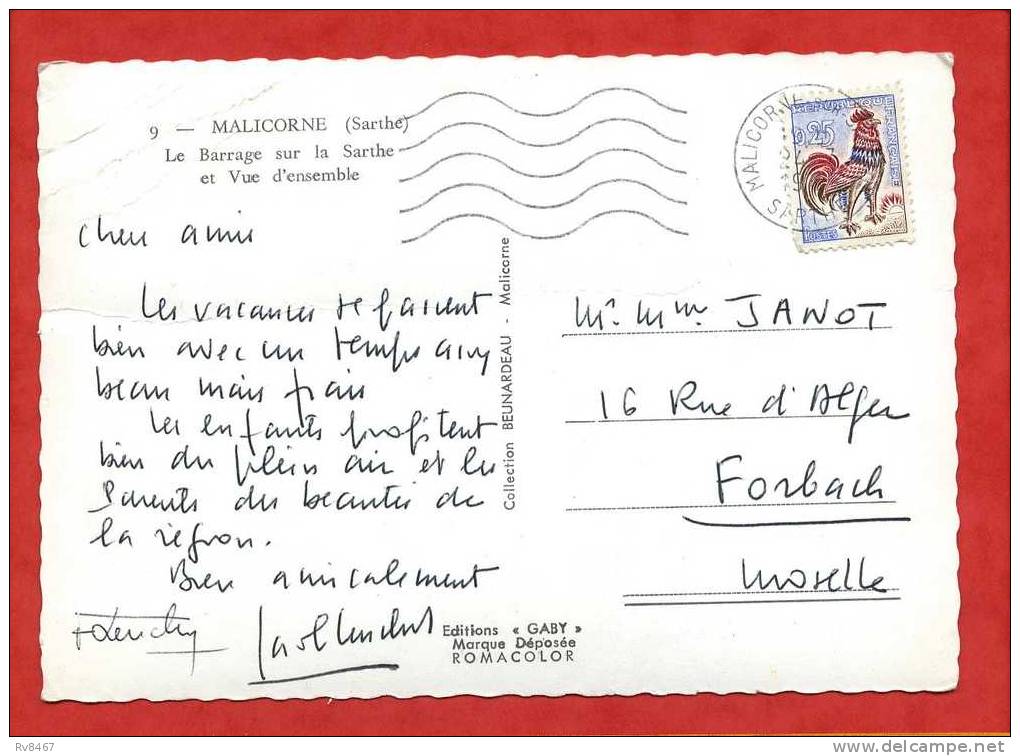 9 — MALICORNE (Sarthe)
Le Barrage sur la Sarthe
et Vue d'ensemble
MALICORNE
SARTHE
REPUBLIQUE FRANÇAISE
0,25
POSTES
Chers amis
Les vacances se passent
bien avec un temps assez
beau mais frais
Les enfants profitent
bien du plein air et les
Parents des beautés de
la région.
Bien amicalement
Collection BEUNARDEAU - Malicorne
Editions « GABY »
Marque Déposée
ROMACOLOR
Mr. Mme JANOT
16 Rue d'Alger
Forbach
Moselle
Rv8467
www.delcampe.net